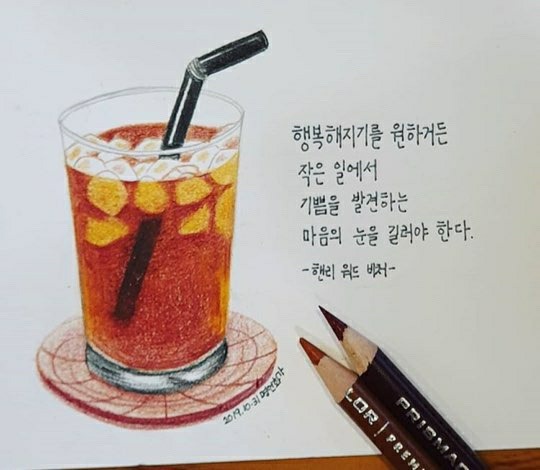 행복해지기를 원하거든
작은 일에서
기쁨을 발견하는
마음의 눈을 길러야 한다.
-헨리 워드 비처-
2019.10.31
LOR | PREM
PRISMA